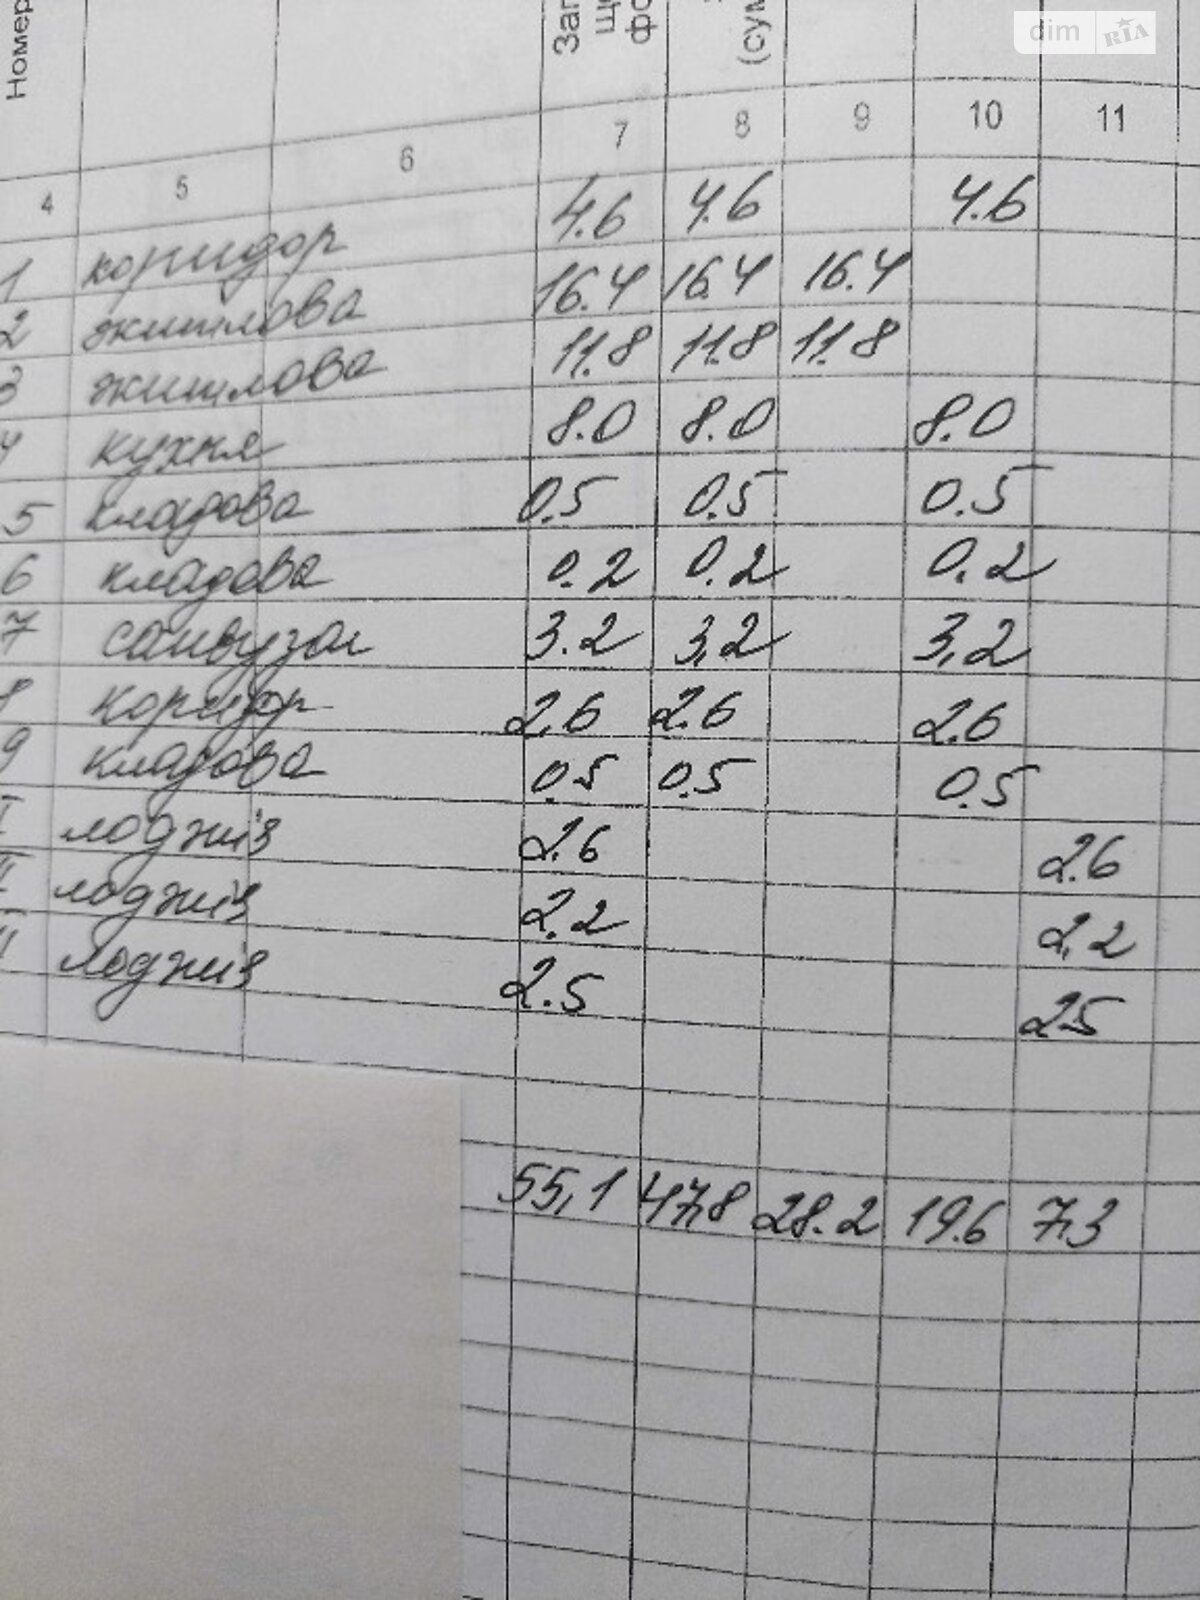 dim RIA
Номер Заг що фо (сум
4 5 6 7 8 9 10 11
1 коридор 4.6 4.6 4.6
2 житлова 16.4 16.4 16.4
3 житлова 11.8 11.8 11.8
4 кухня 8.0 8.0 8.0
5 кладова 0.5 0.5 0.5
6 кладова 0.2 0.2 0.2
7 санвузол 3.2 3,2 3,2
8 коридор 2,6 2.6 2.6
9 кладова 0.5 0.5 0.5
I лоджія 2.6 2.6
II лоджія 2.2 2,2
лоджія 2.5 2.5
55,1 47,8 28.2 19.6 7,3